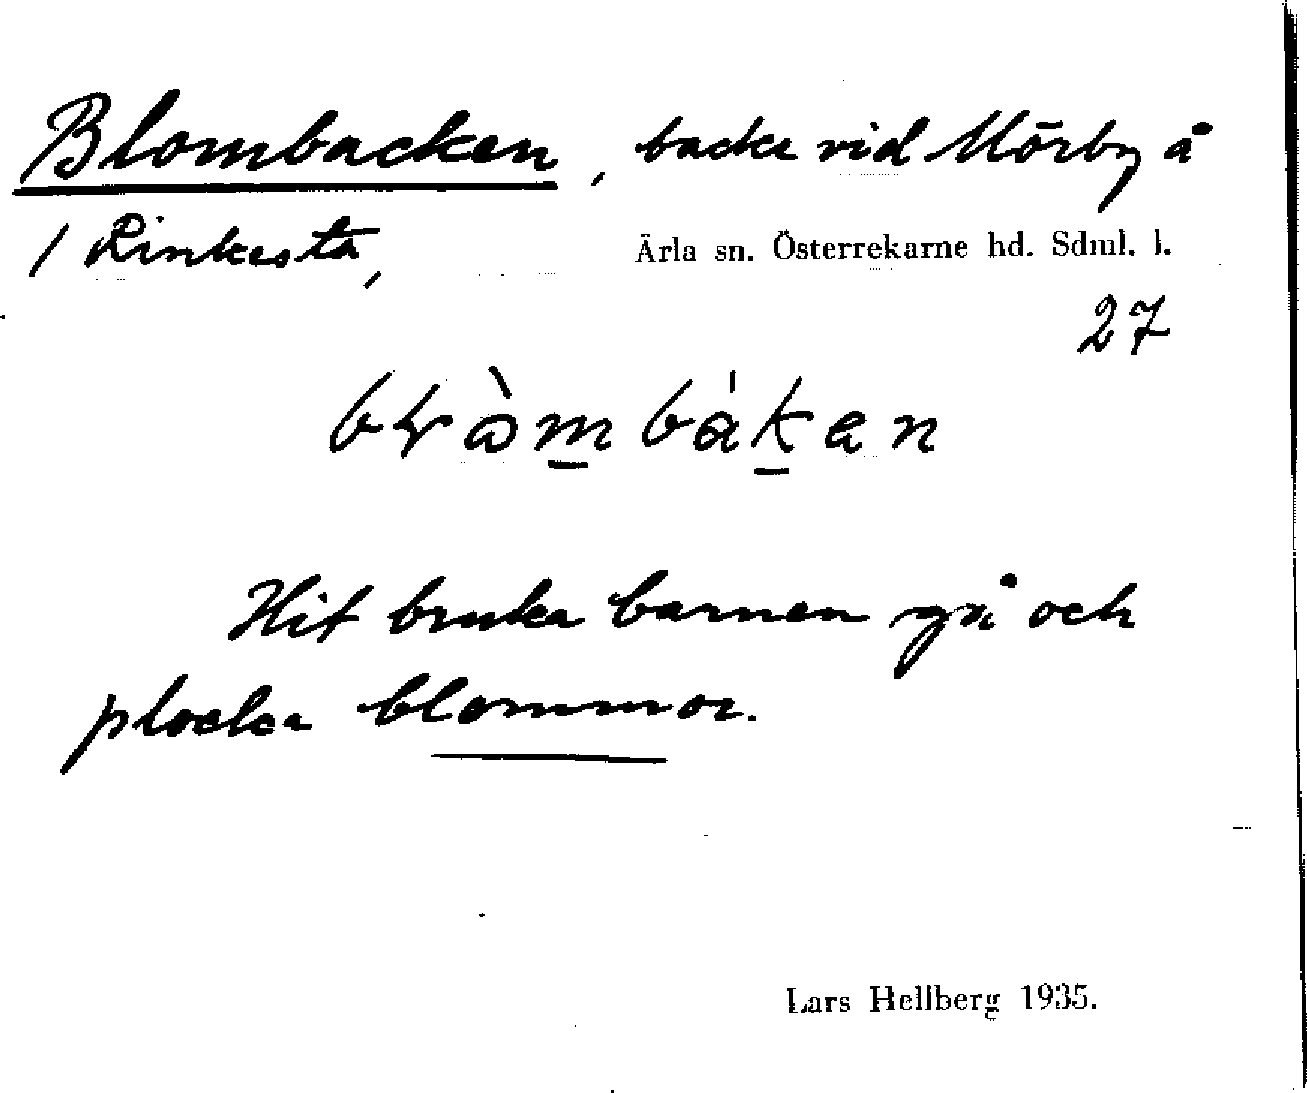 Blombacken, backe vid Mörby å
/ Rinkesta,
Ärla sn. Österrekarne hd. Sdml. l.
27
Hit bruka barnen gå och
plocka blommor.
Lars Hellberg 1935.